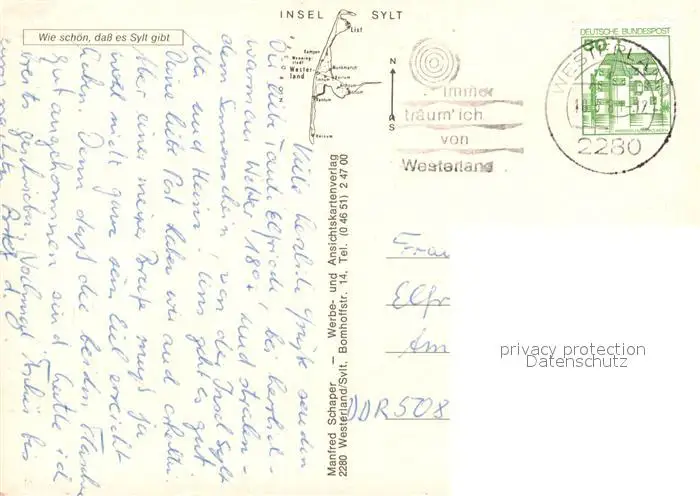 INSEL SYLT
Wie schön, daß es Sylt gibt
List
Kampen
Wenningstedt
Westerland
Munkmarsch
Keitum
Rantum
Hörnum
N
S
immer
träum' ich
von
Westerland
DEUTSCHE BUNDESPOST
50
WESTERLAND
2280
Viele herzliche Grüße senden
Dir liebe Tante Elfriede, bei herrlich-
warmen Wetter 18° + und strahlen-
dem Sonnenschein, von der Insel Sylt
und Heinz. Uns geht es gut
Dein liebe Post haben wir auch erhalten.
Aber einer meiner Briefe muß ja
wohl nicht ganz sein Ziel erreicht
haben. Denn daß die beiden
gut angekommen sind hatte ich
bereits geschrieben. Nochmal bis
zum nächsten Brief
Manfred Schaper — Werbe- und Ansichtskartenverlag
2280 Westerland/Sylt, Bomhoffstr. 14, Tel. (0 46 51) 2 47 00
Frau
Elfr
Am
DDR 508
privacy protection
Datenschutz